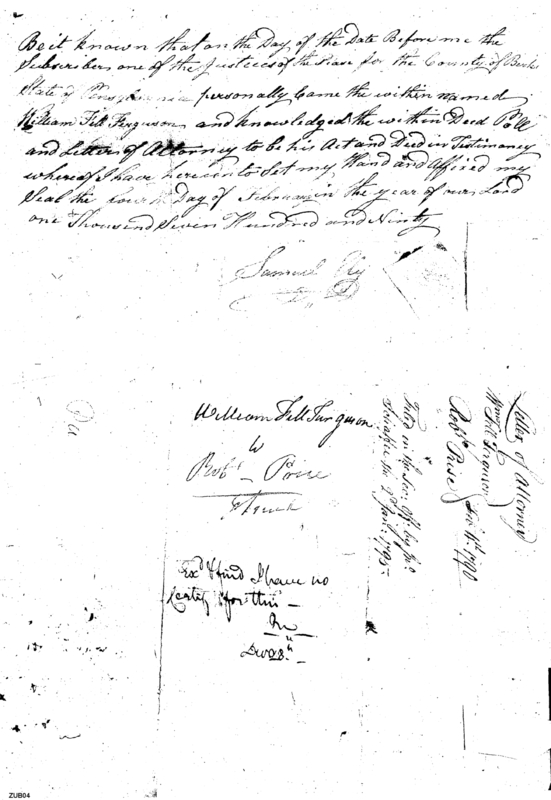 Be it known that on the Day of the Date Before me the
Subscriber one of the Justices of the Peace for the County of Bucks
State of Pensylvania personally Came the within named
William Fell Ferguson and acknowledged the within Deed Poll
and Letter of Attorney to be his Act and Deed in Testimony
whereof I have hereunto Set my Hand and Affixed my
Seal the fourth Day of February in the year of our Lord
one Thousand Seven Hundred and Ninty
Samuel
William Fell Furguson
to
Robt Poise
Exd & find I have no
for this

Letter of Attorney
Wm Fell Ferguson
Robt Poise
1790
Filed in the
1795
ZUB04